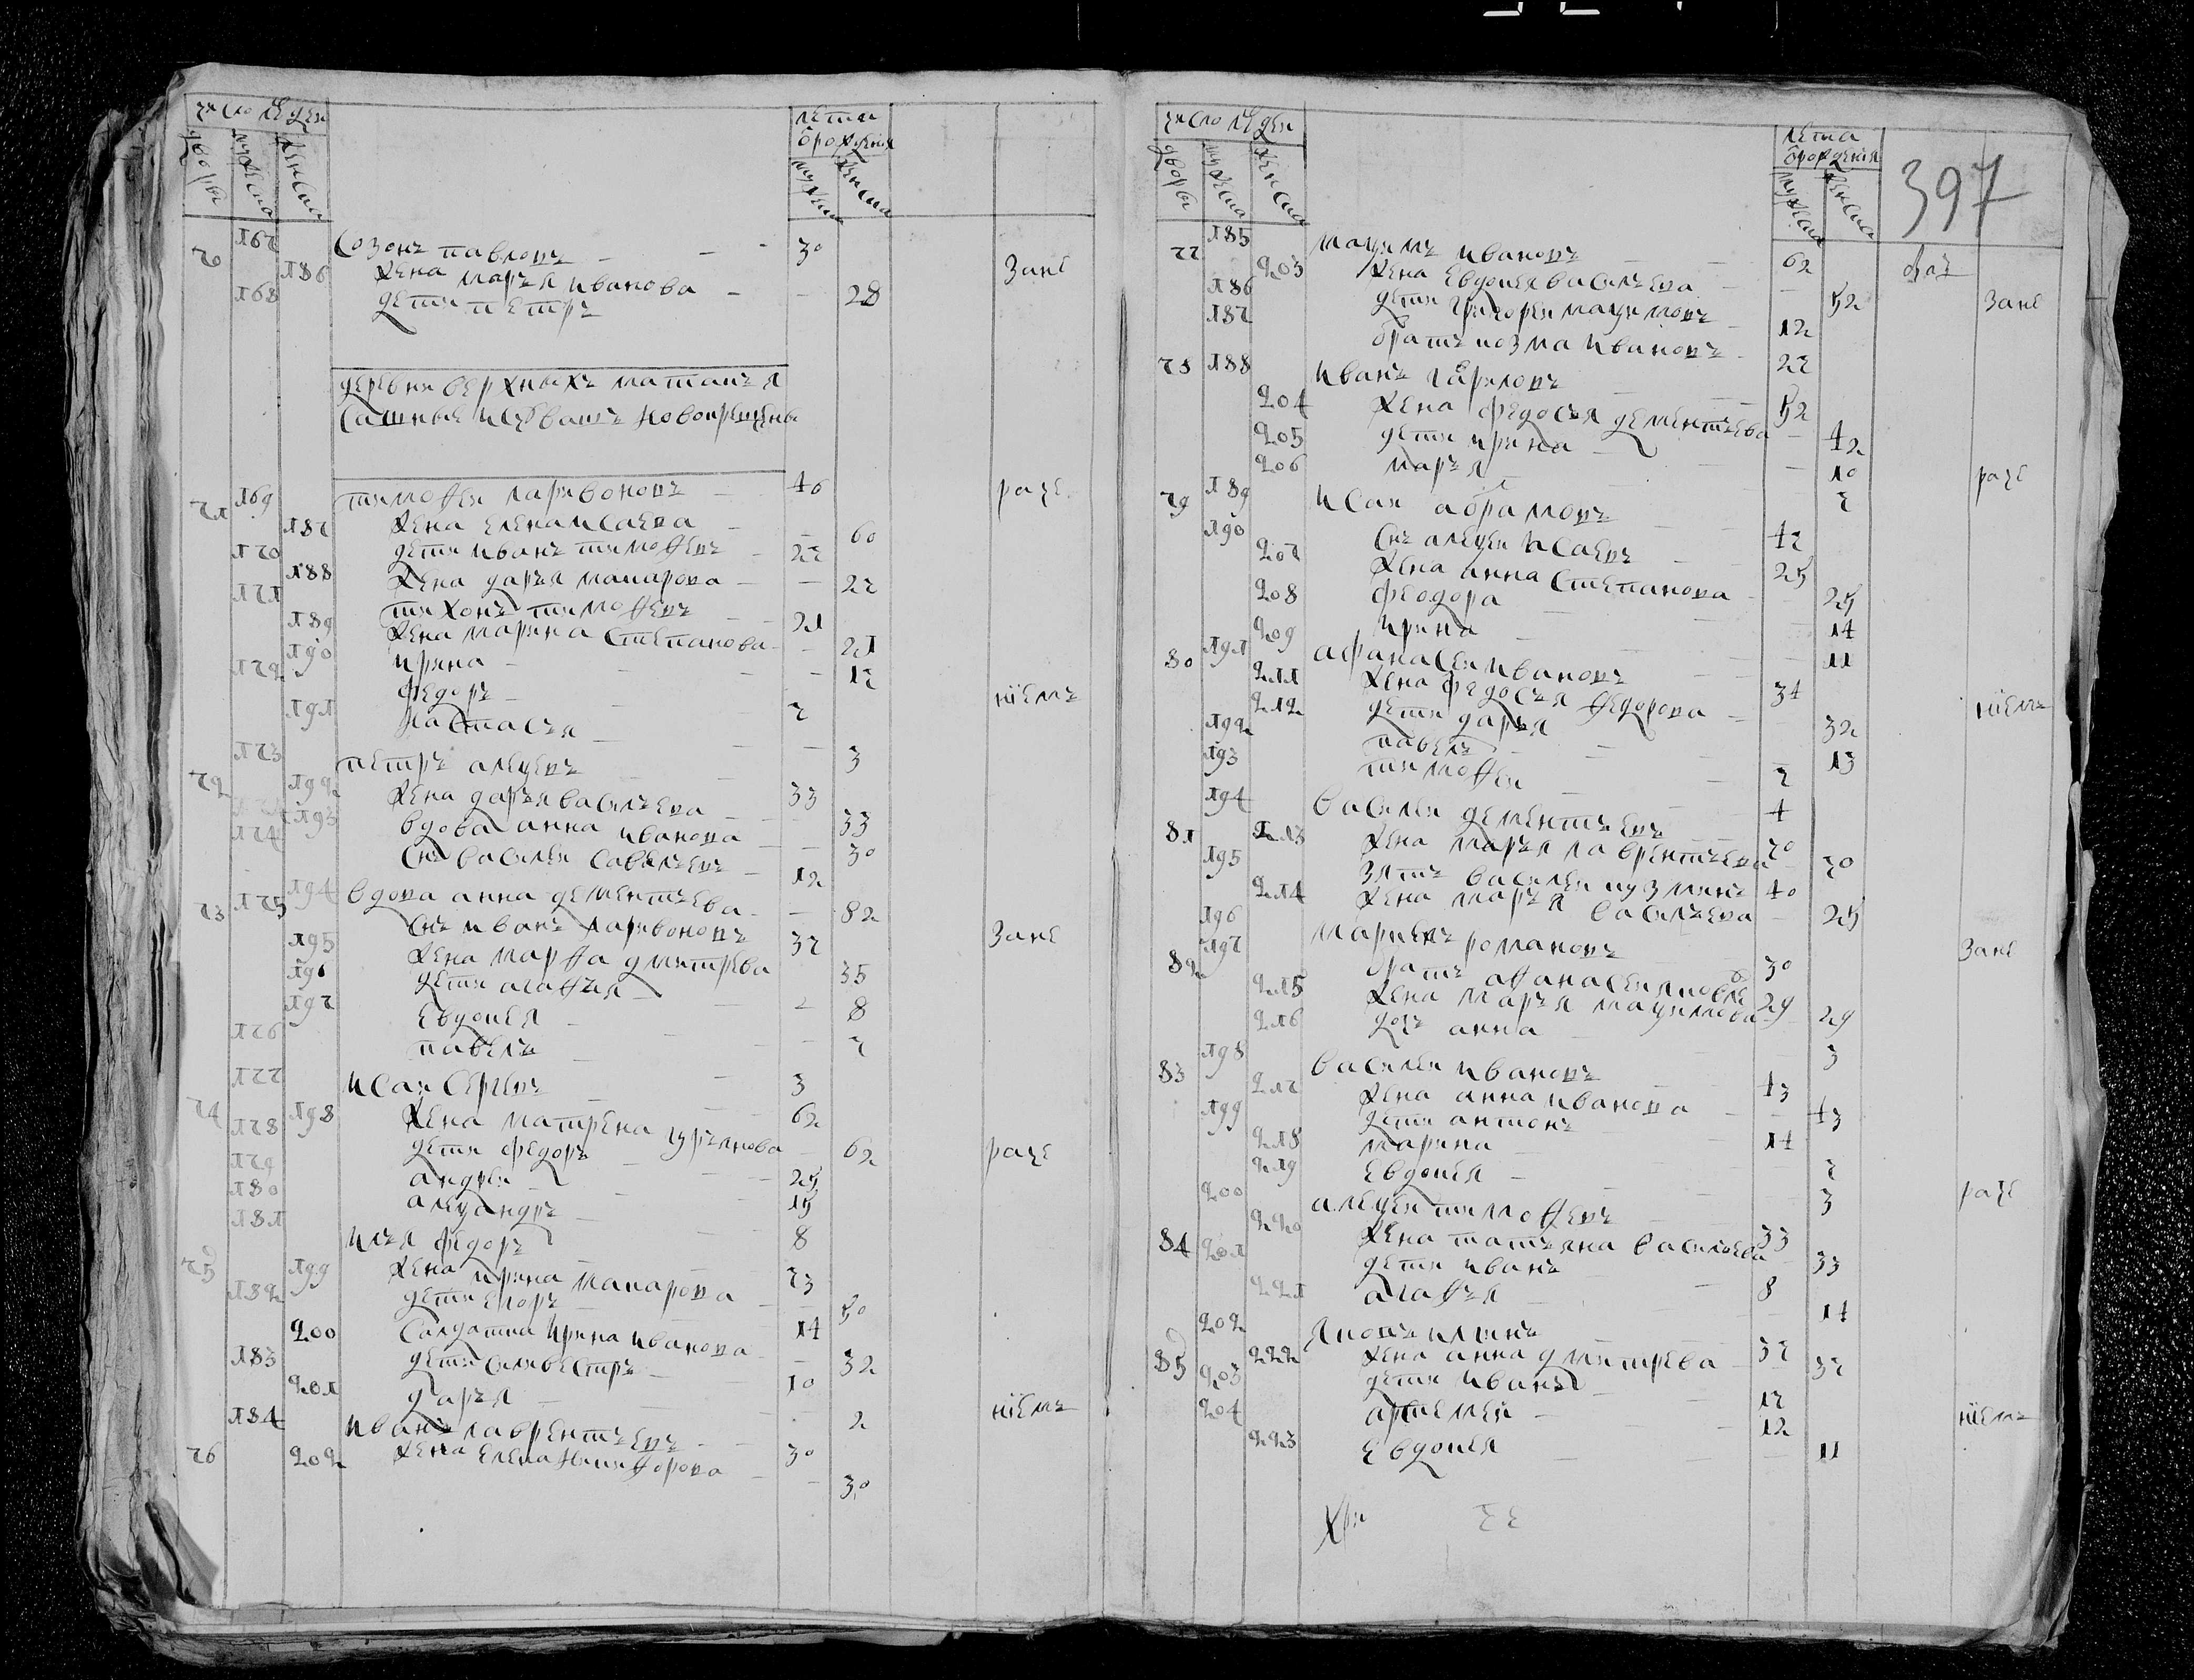 число людеи
дворы мужеска женска
лета от рождения
мужеска женска
70 167 Созонъ павловъ — — 30
186 жена марья иванова — — 28
168 дети петръ
Зане
деревни верхныхъ маташъ я
сашные исчювашъ новокрещены
71 169 тимофеи ларивоновъ — 40
раче
187 жена елена исаева — — 60
170 дети иванъ тимофеевъ — 27
188 жена дарья макарова — — 27
171 тихонъ тимофеевъ — 21
189 жена марина степанова — — 21
190 ирина — — 17
172 федоръ — 7
191 настасья — — 3
нiемъ
72 173 петръ алексеевъ — 33
192 жена дарья васильева — — 33
193 вдова анна иванова — — 30
174 снъ василеи савельевъ — 12
73 194 вдова анна дементьева — — 82
175 снъ иванъ ларивоновъ — 37
195 жена марфа дмитрева — — 35
Зане
196 дети агафья — — 8
197 евдокея — — 7
176 павелъ — 3
74 177 исаи сергеевъ — 62
198 жена матрена гурьянова — — 62
178 дети федоръ — 25
раче
179 андреи — 15
180 александръ — 8
75 181 илья федоровъ — 73
199 жена ирина макарова — — 50
182 дети егоръ — 14
200 салдатка ирина иванова — — 32
183 дети силивестръ — 10
201 дарья — — 2
76 184 иванъ лаврентьевъ — 30
нiемъ
202 жена елена никифорова — — 30
число людеи
дворы мужеска женска
лета от рождения
мужеска женска
397
77 185 максимъ ивановъ — 62
203 жена евдокея васильева — — 52
186 дети григореи максимовъ — 12
Зане
187 братъ козма ивановъ — 27
78 188 иванъ гавриловъ — 52
204 жена федосья дементьева — — 42
205 дети ирина — — 10
206 марья — — 7
раче
79 189 исаи абрамовъ — 47
190 снъ алексеи исаевъ — 25
207 жена анна степанова — — 25
208 феодора — — 14
209 ирина — — 11
80 191 афанасеи ивановъ — 34
211 жена федосья федорова — — 32
212 дети дарья — — 13
нiемъ
192 павелъ — 7
193 тимофеи — 4
81 194 василеи дементьевъ — 70
213 жена марья лаврентьева — — 70
195 зять василеи кузминъ 40
214 жена марья васильева — — 25
82 196 маркелъ романовъ — 30
Зане
197 братъ афанасеи яковле 29
215 жена марья максимова — — 29
216 дочь анна — — 3
83 198 василеи ивановъ — 43
217 жена анна иванова — — 43
199 дети антонъ — 14
218 марина — — 7
219 евдокея — — 3
раче
84 200 алексеи тимофеевъ — 33
220 жена татьяна васильева — 33
201 дети иванъ — 8
221 агафья — — 14
85 202 яковъ илинъ — 37
222 жена анна дмитрева — — 37
203 дети иванъ — 17
204 артемеи — 12
нiемъ
223 евдокея — — 11